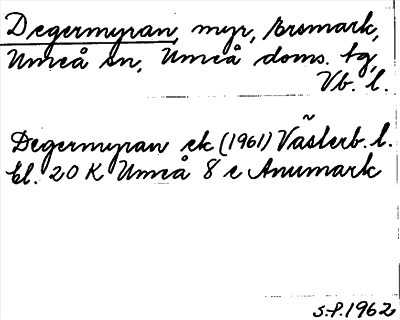 Degermyran, myr, Brsmark,
Umeå sn, Umeå doms. tg,
Vb. l.
Degermyran ek (1961) Västerb. l.
bl. 20 K Umeå 8 e Anumark
S.P. 1962